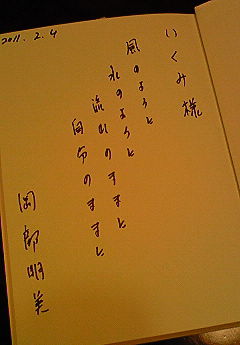 2011.2.4
いくみ様
風のように
水のように
流れのままに
自分のままに
岡部明美